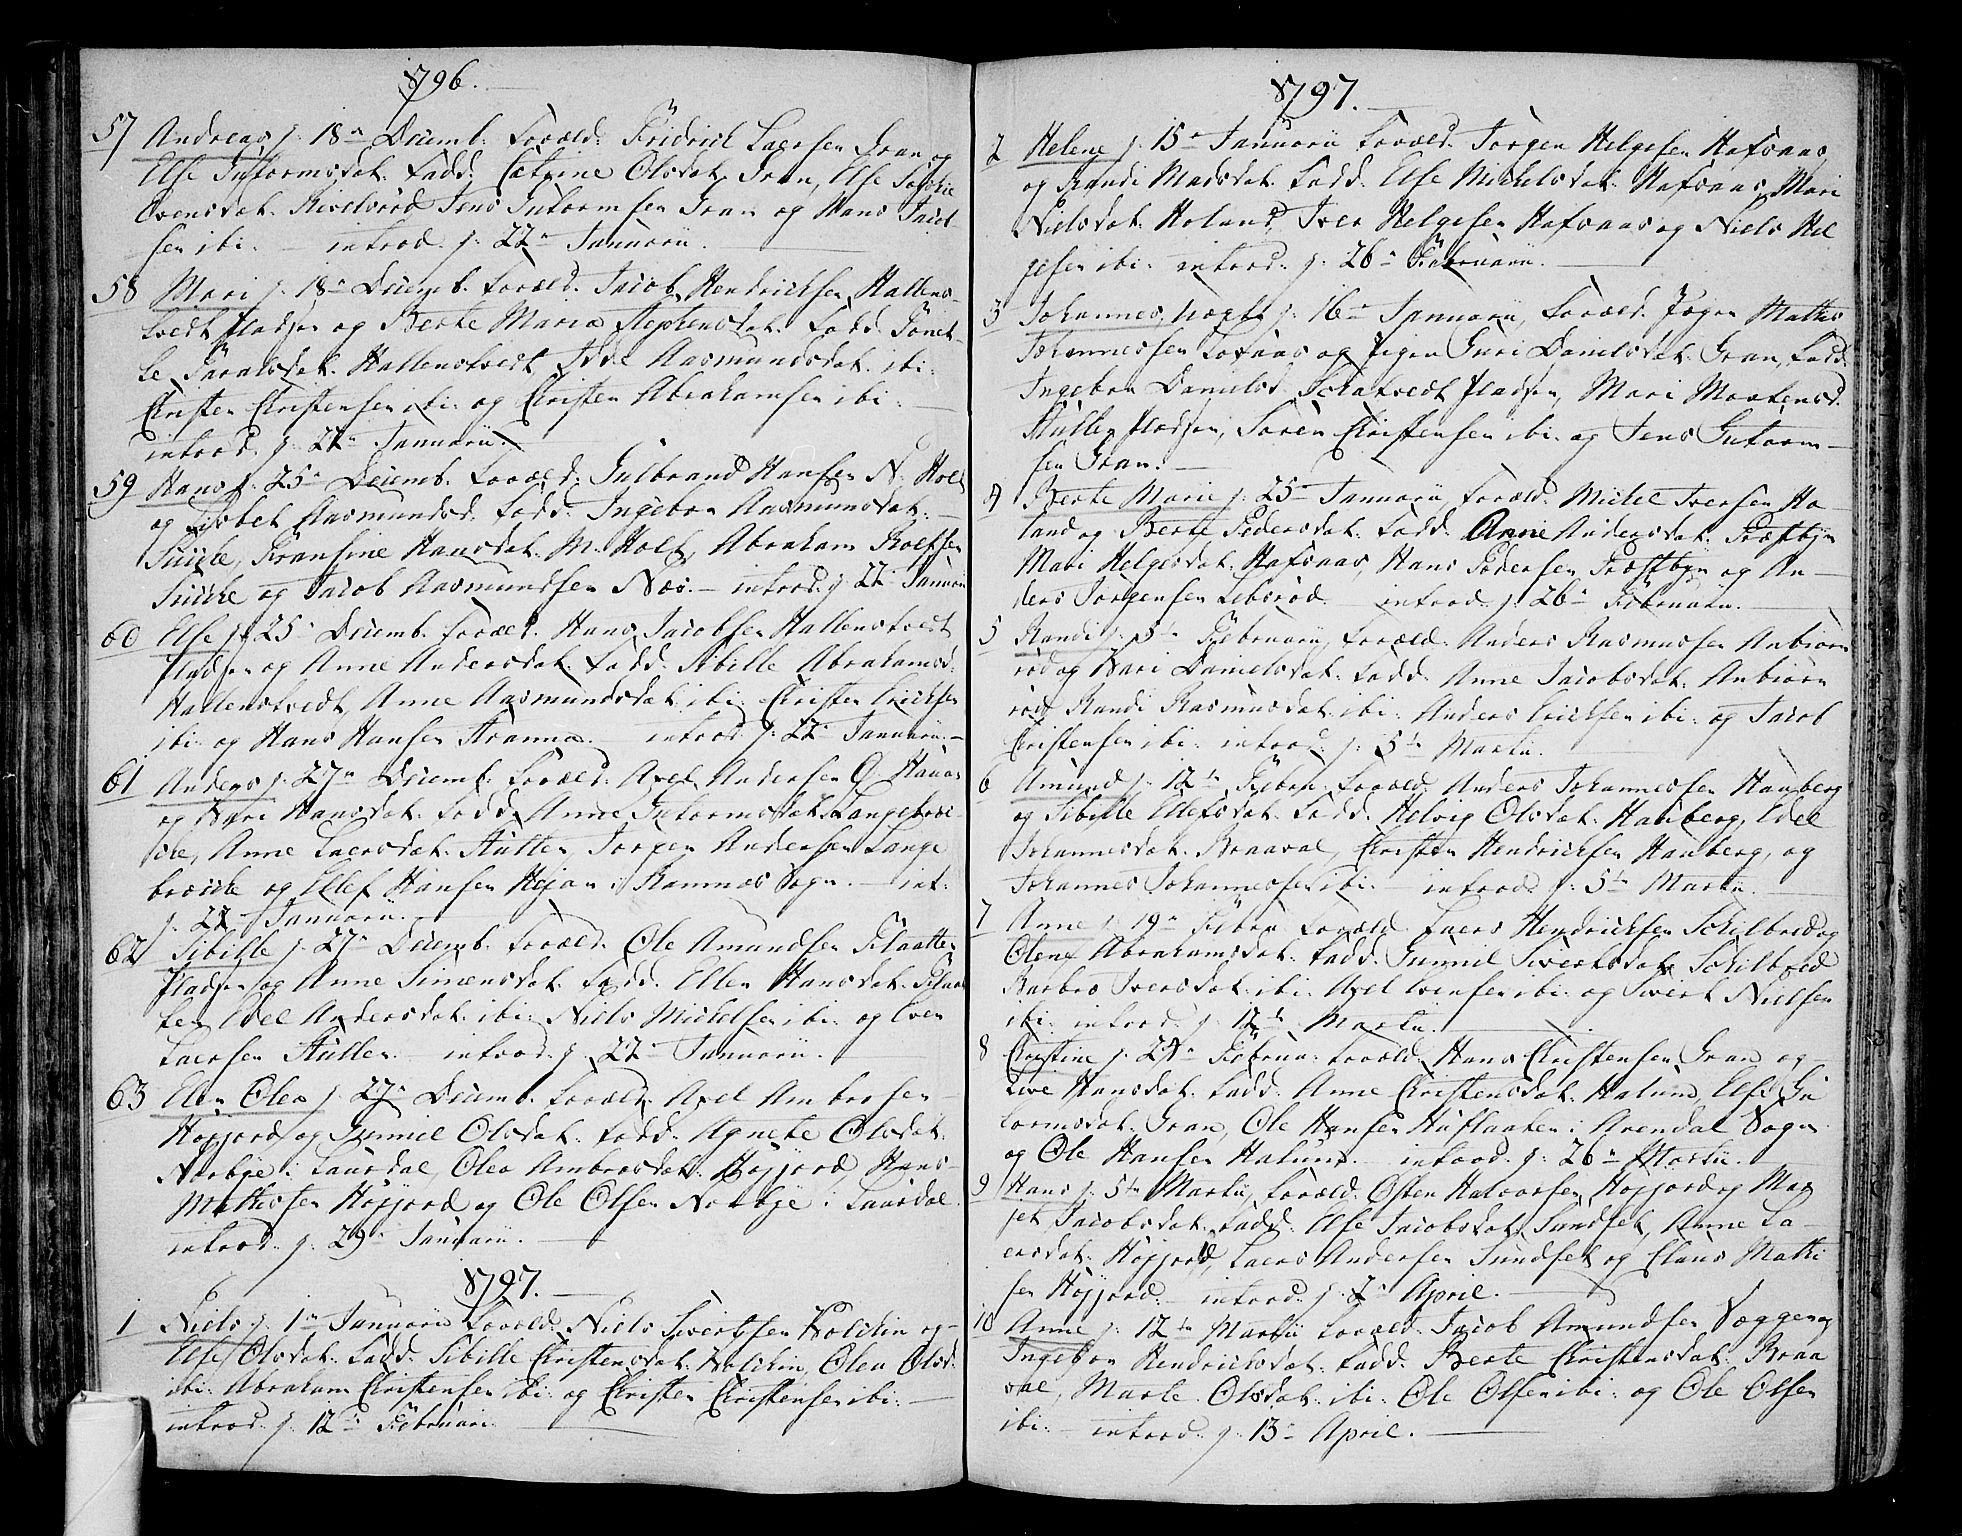 1796.
57 Andreas f. 18de Decemb. Foræld. Fridrich Laersen Gran og
Else Guttormsdat. Fadd. Catrine Olsdat. Gran, Else Sophie
Evensdat. Jens Guttormsen Gran og Hans Jacob-
sen ibi. introd. f. 22de Januarii.
58 Mari f. 18de Decemb. Foræld. Jacob Hendrichsen Hallens-
tvedt pladsen og Berte Maria Stephensdat. Fadd. Gunel-
le Haralsdat. Hallenstvedt, Aasmundsdat. ibi.
Christen Christensen ibi. og Christen Abrahamsen ibi.
introd. f. 22de Januarii.
59 Hans f. 25de Decemb. Foræld. Gulbrand Hansen N. Holt
og Lisbet Aasmundsd. Fadd. Ingebor Aasmundsdat.
Fransine Hansdat. M. Holt, Abraham Rolfsen
og Jacob Aasmundsen Næs. introd. f. 22de Januarii
60 Else f. 25de Decemb. Foræld. Hans Jacobsen Hallenstvedt
pladsen og Anne Andersdat. Fadd. Sibille Abrahamsd.
Hallenstvedt, Anne Aasmundsdat. ibi. Christen Erichsen
ibi. og Hans Hansen Aranna. introd. f. 22de Januarii.
61 Anders f. 27de Decemb. Foræld. Axel Andersen Ø. Hanas
og Kari Hansdat. Fadd. Anne Guttormsdat. Langebrei-
de, Anne Laersdat. Hutten, Jørgen Andersen Lange
breche og Ellef Hansen Hejan i Ramnæs Sogn. int.
f. 22de Januarii.
62 Sibille f. 27de Decemb. Foræld. Ole Amundsen Flaatten
pladsen og Anne Simensdat. Fadd. Ellen Hansdat. Flaat
ten, Edel Andersdat. ibi. Niels Michelsen ibi. og Even
Laersen Hullen. introd. f. 22de Januarii.
63 Elen Olea f. 27de Decemb. Foræld. Axel Ambrosen
Høyjord og Gunnil Olsdat. Fadd. Agnete Olsdat.
Norbye i Laurdal, Olea Ambrosdat. Høyjord, Hans
Mathissen Høyjord og Ole Olsen Norbye i Laurdal.
introd. f. 29de Januarii.
1797.
1 Niels f. 1de Januarii Foræld. Niels Sivertsen Kolskin og
Else Olsdat. Fadd. Sibille Christensdat. Kolskin, Olea Olsd.
ibi. Abraham Christensen ibi. og Christen Christensen ibi.
introd. f. 12de Februarii.
1797.
2 Helene f. 15de Januarii Foræld. Jørgen Helgesen Hafsaas
og Randi Madsdat. Fadd. Else Michelsdat. Hafsaas, Mari
Nielsdat. Holand, Iver Helgesen Hafsaas og Niels Hel
gesen ibi. introd. f. 26de Februarii.
3 Johannes, uægte f. 16de Januarii, Foræld. Pigen Mathis
Johannessen Lofaas og Pigen Guri Danielsdat. Gran, Fadd.
Ingebor Danielsd. pladsen, Mari Mortensd.
Hullen pladsen, Søren Christensen ibi. og Jens Guttorm-
sen Gran.
4 Berte Marie f. 25de Januarii, Foræld. Michel Iversen Ho-
land og Berte Pedersdat. Fadd. Anne Andersdat. Præstbyn
Mari Helgesdat. Hafsaas, Hans Pedersen Præstbyn og An-
ders Jørgensen Lebsrød. introd. f. 26de Februarii.
5 Randi f. 5de Februarii, Foræld. Anders Rasmussen Anbiørn
rød og Kari Danielsdat. Fadd. Anne Jacobsdat. Anbiørn
rød, Randi Rasmusdat. ibi. Anders Erichsen ibi. og Jacob
Christensen ibi. introd. f. 5te Martii.
6 Amund f. 12te Februa. Foræld. Anders Johannessen Hauberg
og Sibille Ellefsdat. Fadd. Helvig Olsdat. Hauberg, Edel
Johannesdat. Braavol, Christen Hendrichsen Hauberg, og
Johannes Johannessen ibi. introd. f. 5te Martii.
7 Anne f. 19de Februa. Foræld. Laers Hendrichsen Schilbred og
Olene Abrahamsdat. Fadd. Gunnil Sivertsdat. Schilbred
Barbro Iversdat. ibi. Axel Evensen ibi. og Sivert Nielsen
ibi. introd. f. 12te Martii.
8 Christine f. 24de Februa. Foræld. Hans Christensen Gran og
Live Hansdat. Fadd. Anne Christensdat. Halum, Else Gu
tormsdat. Gran, Ole Hansen Huflaaten i Arendal Sogn
og Ole Hansen Halum. introd. f. 26de Martii.
9 Hans f. 5te Martii, Foræld. Østen Halvorsen Høyjord og Mar
jet Jacobsdat. Fadd. Else Jacobsdat. Sundset, Anne La-
ersdat. Høyjord, Laers Andersen Sundset og Claus Mathi
sen Høyjord. introd. f. 2de April.
10 Anne f. 12te Martii Foræld. Jacob Amundsen Væggen og
Ingebor Hendrichsdat. Fadd. Berte Christensdat. Braa
vol, Marte Olsdat. ibi. Ole Olsen ibi. og Ole Olsen
ibi. introd. f. 13de April.